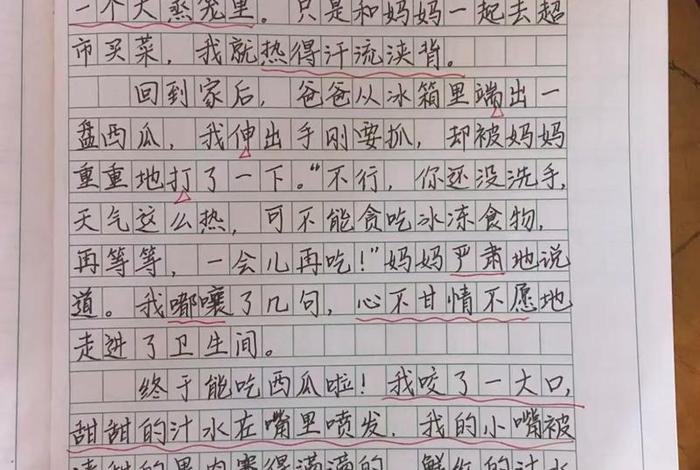 一个大蒸笼里。只是和妈妈一起去超
市买菜，我就热得汗流浃背。
回到家后，爸爸从冰箱里端出一
盘西瓜，我伸出手刚要抓，却被妈妈
重重地打了一下。“不行，你还没洗手，
天气这么热，可不能贪吃冰冻食物，
再等等，一会儿再吃！”妈妈严肃地说
道。我嘟囔了几句，心不甘情不愿地
走进了卫生间。
终于能吃西瓜啦！我咬了一大口，
甜甜的汁水在嘴里喷发，我的小嘴被
的果肉塞得满满的，鲜